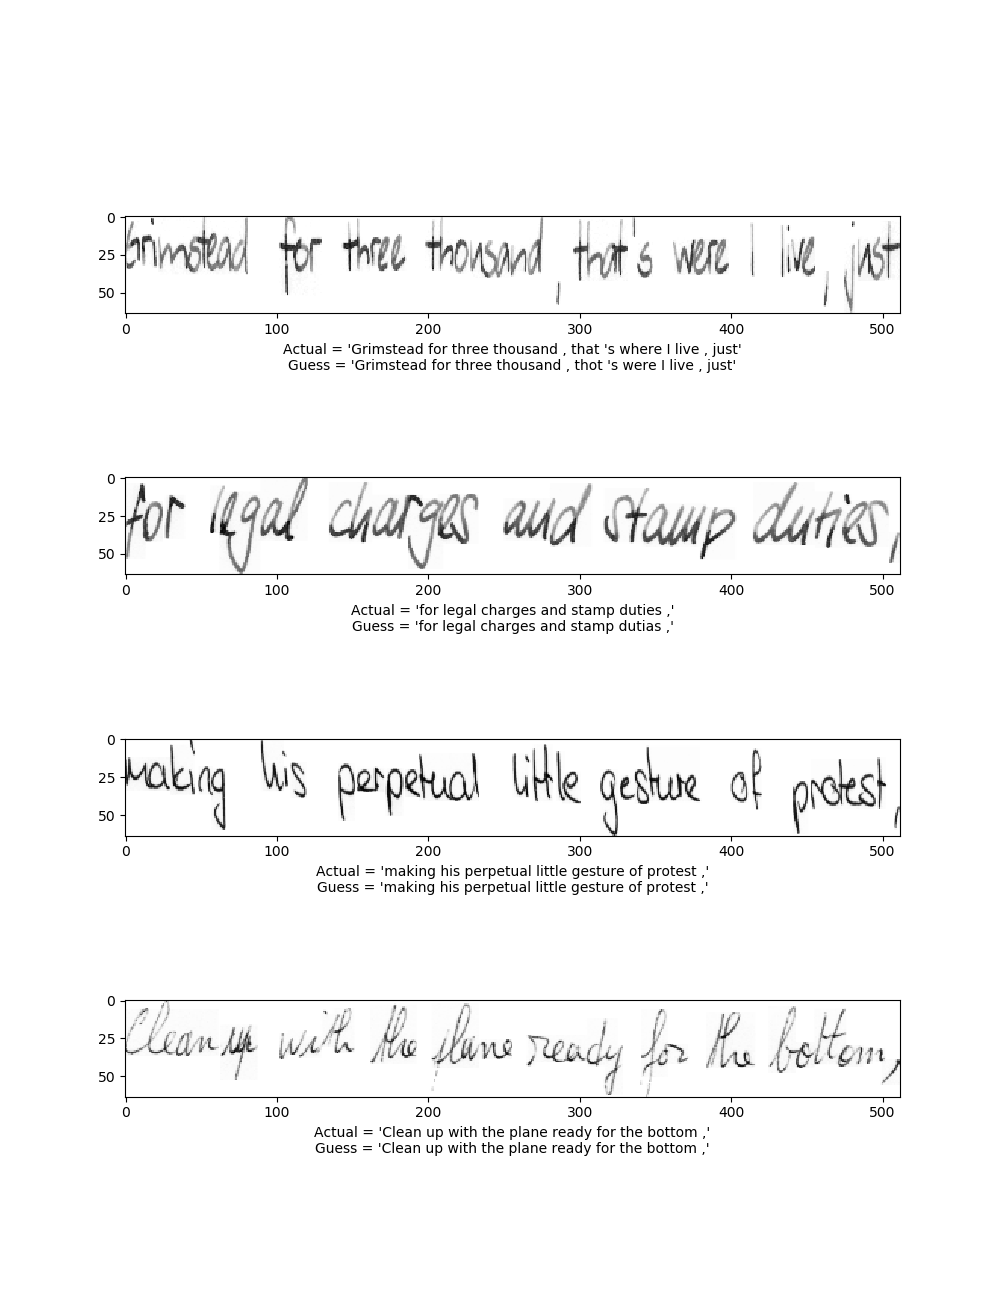 0
25
50
Grimstead for three thousand, that's were I live, just
0 100 200 300 400 500
Actual = 'Grimstead for three thousand , that 's where I live , just'
Guess = 'Grimstead for three thousand , thot 's were I live , just'
0
25
50
for legal charges and stamp duties,
0 100 200 300 400 500
Actual = 'for legal charges and stamp duties ,'
Guess = 'for legal charges and stamp dutias ,'
0
25
50
making his perpetual little gesture of protest,
0 100 200 300 400 500
Actual = 'making his perpetual little gesture of protest ,'
Guess = 'making his perpetual little gesture of protest ,'
0
25
50
Clean up with the plane ready for the bottom,
0 100 200 300 400 500
Actual = 'Clean up with the plane ready for the bottom ,'
Guess = 'Clean up with the plane ready for the bottom ,'